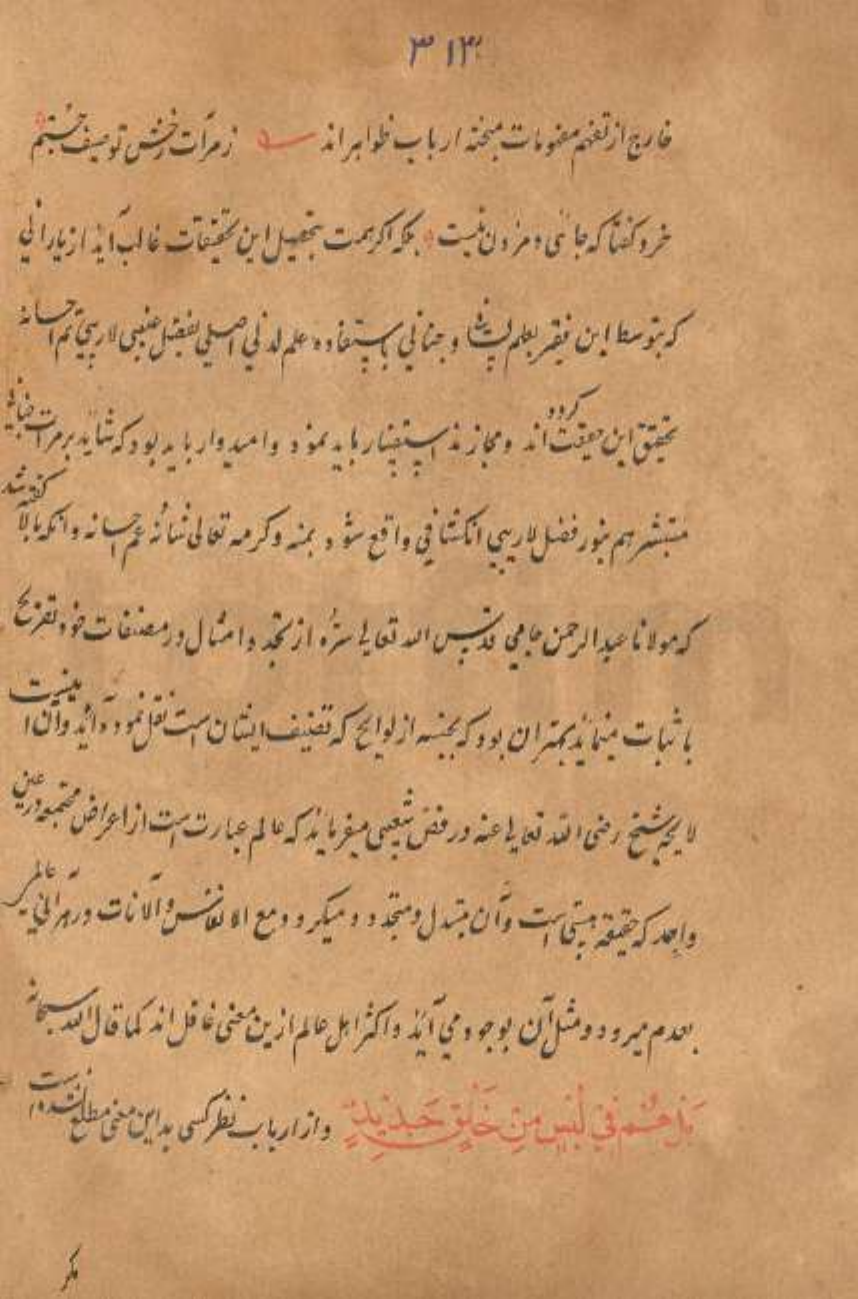 ۳۱۳
خارج از تفهم مفهومات مبحثه ارباب ظواهراند ز مرآت رخش توصیف جستم
خرد گفتا که جائی دم زدن نیست بلکه اگر همت بتحصیل این تحقیقات غالب آید از یارانی
که بتوسط این فقیر بعلم لسانی و جنانی باستفاده علم لدنی اصلی بفضل غیبی لاریبی تم احسانه
تحقیق این حقیقت کرده اند و مجازند استفسار باید نمود و امیدوار باید بود که شاید بر مرآت جنانی
مستفسر هم بنور فضل لاریبی انکشافی واقع شود بمنه و کرمه تعالی شانه عم احسانه و آنکه بالا گفته شد
که مولانا عبد الرحمن جامی قدس الله تعالی سره از تجدد امثال در مصنفات خود تصریح
باثبات مینماید بهتر آن بود که بجنسه از لوایح که تصنیف ایشان است نقل نموده آید و آن اینست
لایحه شیخ رضی الله تعالی عنه در فص شعیبی میفرماید که عالم عبارت است از اعراض مجتمعه در عین
واحد که حقیقة هستی است و آن متبدل و متجدد میگردد مع الانفاس و الآنات در هر آنی عالمی
بعدم میرود و مثل آن بوجود می آید و اکثر اهل عالم ازین معنی غافل اند کما قال الله سبحانه
بَلْ هُمْ فِي لَبْسٍ مِنْ خَلْقٍ جَدِيدٍ و از ارباب نظر کسی بداین معنی مطلع نشده است
مکر